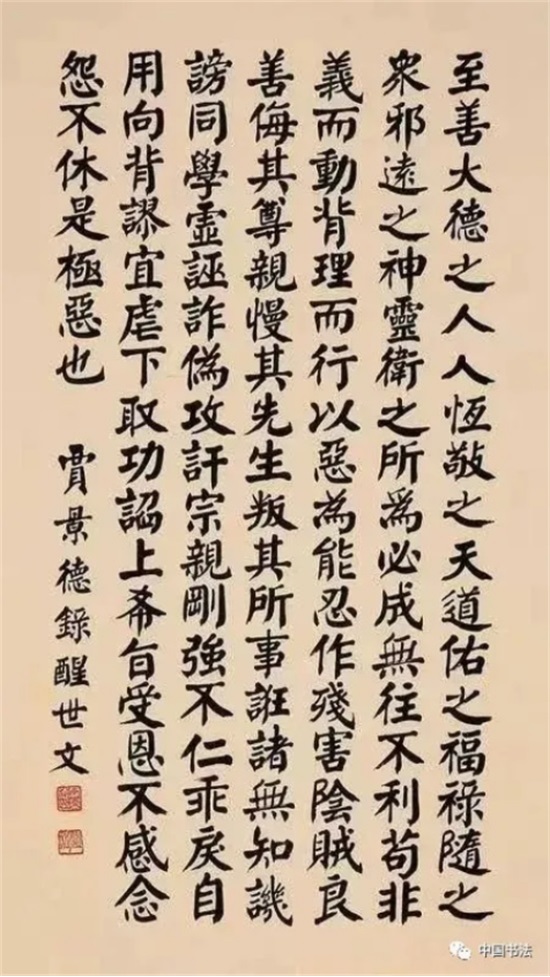 至善大德之人人恆敬之天道佑之福祿隨之
衆邪遠之神靈衛之所爲必成無往不利苟非
義而動背理而行以惡為能忍作殘害陰賊良
善侮其尊親慢其先生叛其所事誑諸無知譏
謗同學虛誣詐僞攻訐宗親剛強不仁乖戾自
用向背謬宜虐下取功諂上希旨受恩不感念
怨不休是極惡也
賈景德錄醒世文
中国书法